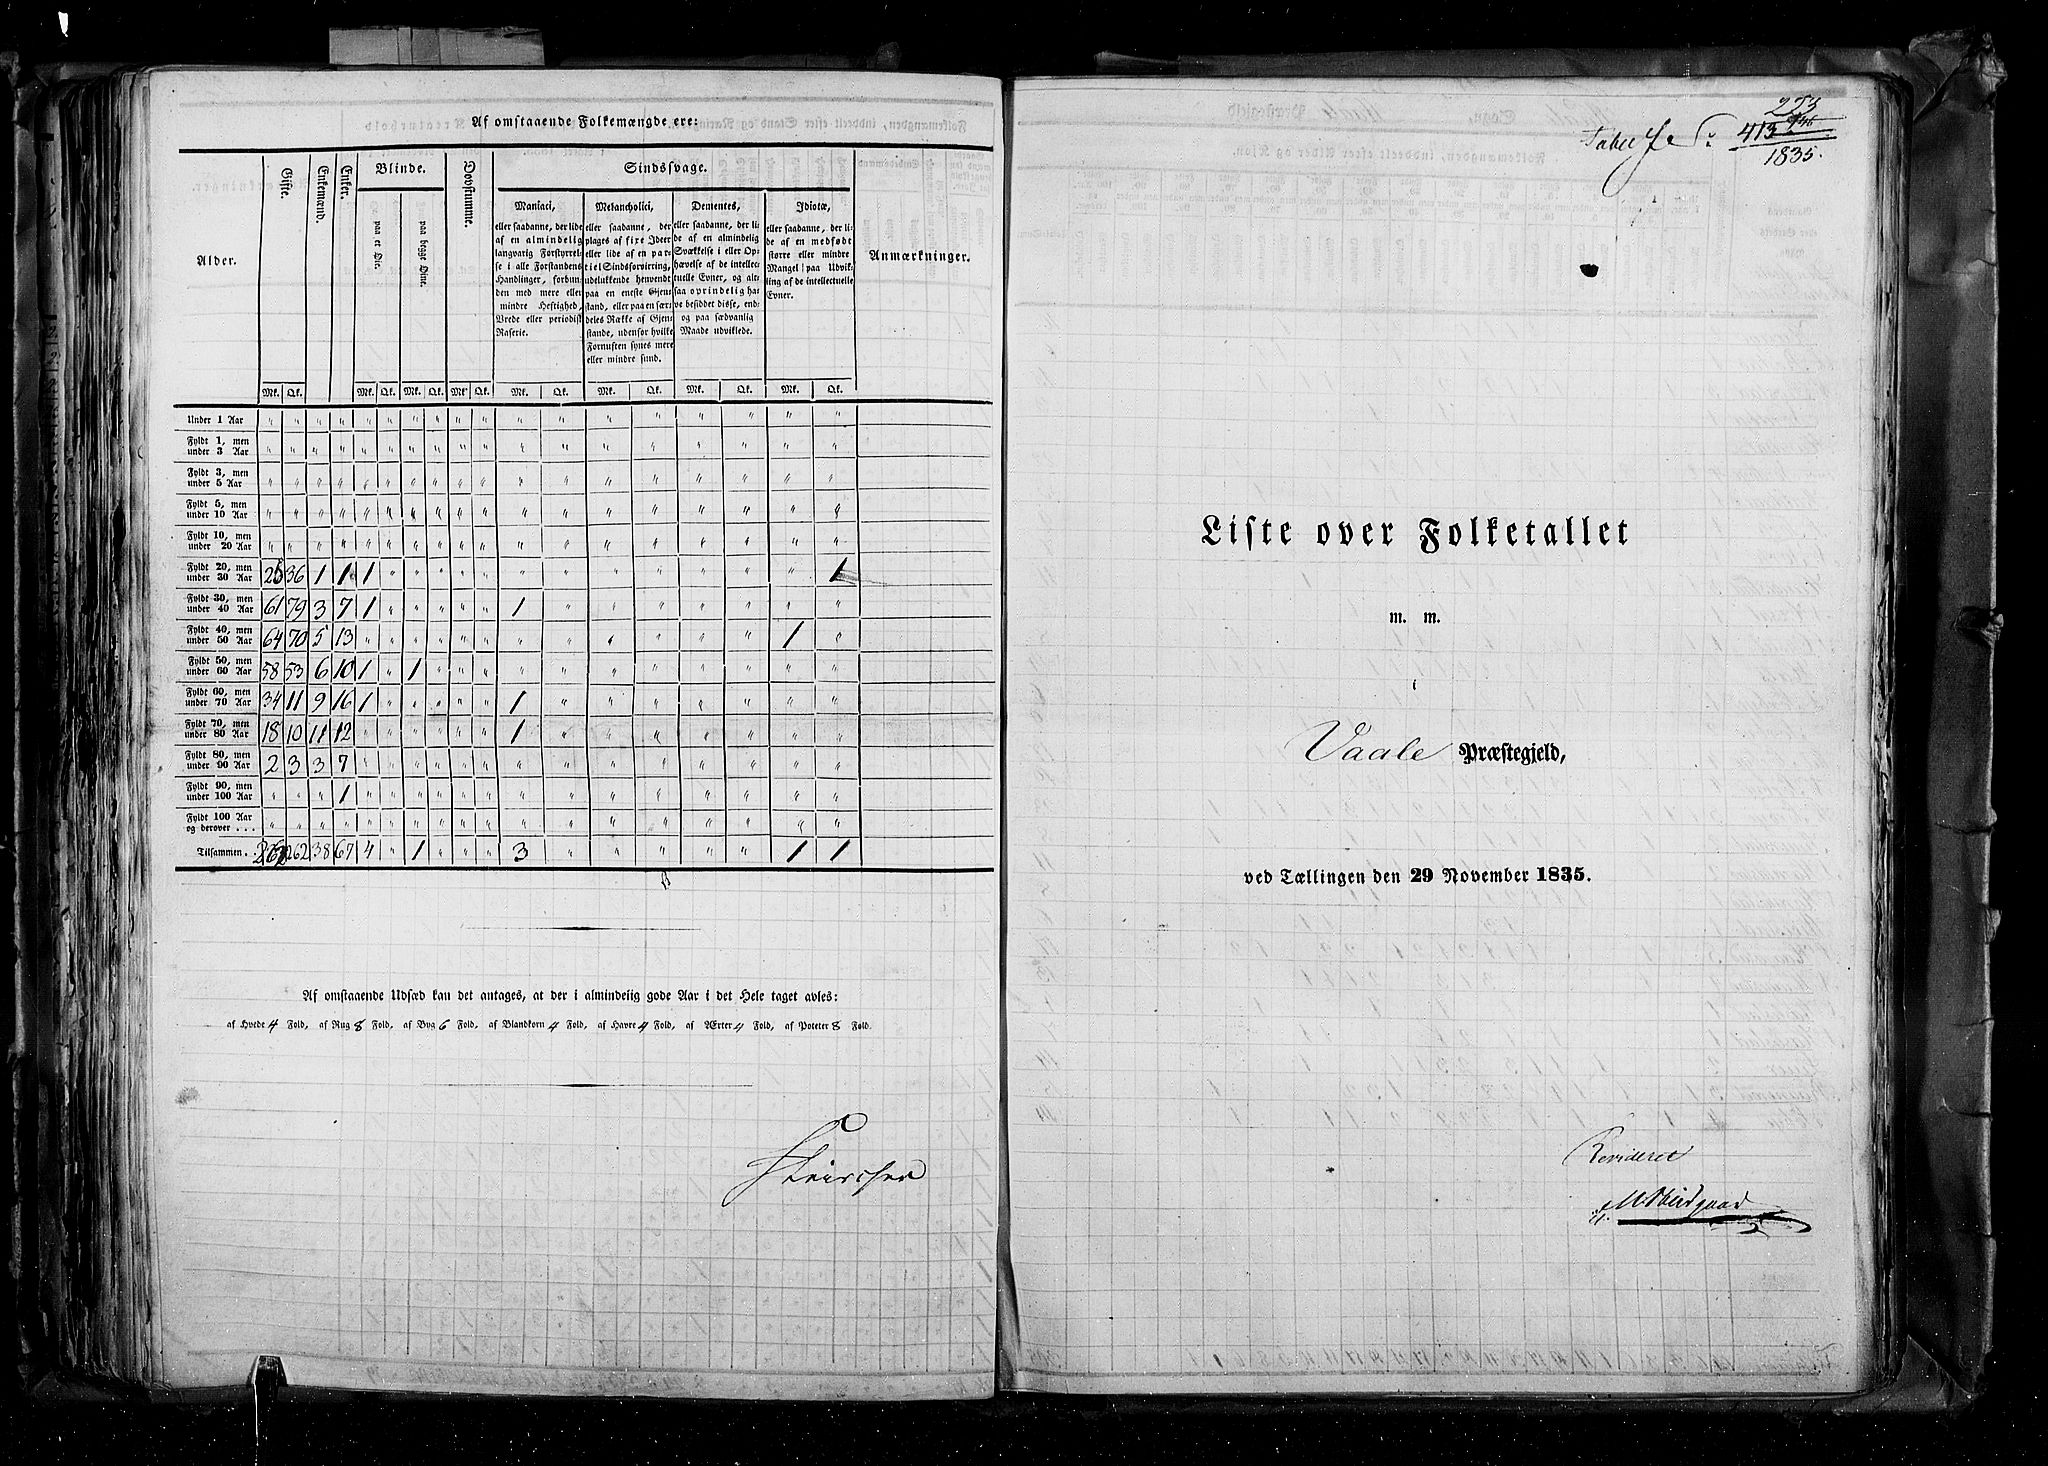 Af omstaaende Folkemængde ere:
Alder. Gifte. Enkemænd. Enker. Blinde. Dovstumme. Sindssvage. Anmærkninger.
paa et Øie. paa begge Øine.
Maniaci,
eller saadanne, der lide
af en almindelig
langvarig Forstyrrel-
se i alle Forstandens
Handlinger, forbun-
den med mere eller
mindre Heftighed,
Vrede eller periodisk
Raserie.
Melancholici,
eller saadanne, der
plages af fixe Ideer
eller lide af en par-
tiel Sindsforvirring,
udelukkende henvendt
paa en eneste Gjen-
stand, eller paa en sær-
deles Række af Gjen-
stande, udenfor hvilke
Fornuften synes mere
eller mindre sund.
Dementes,
eller saadanne, der li-
de af en almindelig
Svækkelse i eller Op-
hævelse af de intellec-
tuelle Evner, og alt-
saa oprindelig ha-
ve besiddet disse, end-
og paa sædvanlig
Maade udviklede.
Idiotæ,
eller saadanne, der li-
de af en medfødt
større eller mindre
Mangel paa Udvik-
ling af de intellectuelle
Evner.
Mk. Qk. Mk. Qk. Mk. Qk. Mk. Qk. Mk. Qk. Mk. Qk. Mk. Qk. Mk. Qk.
Under 1 Aar " " " " " " " " " " " " " " " " " "
Fyldt 1, men under 3 Aar " " " " " " " " " " " " " " " " " "
Fyldt 3, men under 5 Aar " " " " " " " " " " " " " " " " " "
Fyldt 5, men under 10 Aar " " " " " " " " " " " " " " " " " "
Fyldt 10, men under 20 Aar " " " " " " " " " " " " " " " " " "
Fyldt 20, men under 30 Aar 25 36 1 1 1 " " " " " " " " " " " " 1
Fyldt 30, men under 40 Aar 61 79 3 7 1 " " " " " 1 " " " " " " "
Fyldt 40, men under 50 Aar 64 70 5 13 " " " " " " " " " " " " 1 "
Fyldt 50, men under 60 Aar 58 53 6 10 1 " 1 " " " " " " " " " " "
Fyldt 60, men under 70 Aar 34 11 9 16 1 " " " " " 1 " " " " " " "
Fyldt 70, men under 80 Aar 18 10 11 12 " " " " " " 1 " " " " " " "
Fyldt 80, men under 90 Aar 2 3 3 7 " " " " " " " " " " " " " "
Fyldt 90, men under 100 Aar " " " 1 " " " " " " " " " " " " " "
Fyldt 100 Aar og derover . . . " " " " " " " " " " " " " " " " " "
Tilsammen. 262 262 38 67 4 " 1 " " " 3 " " " " " 1 1
Af omstaaende Udsæd kan det antages, at der i almindelig gode Aar i det Hele taget avles:
af Hvede 4 Fold, af Rug 8 Fold, af Byg 6 Fold, af Blandkorn 4 Fold, af Havre 4 Fold, af Ærter 4 Fold, af Poteter 8 Fold.
223
413
1835.
Liste over Folketallet
m. m.
i
Vaale Præstegjeld,
ved Tællingen den 29 November 1835.
Revideret